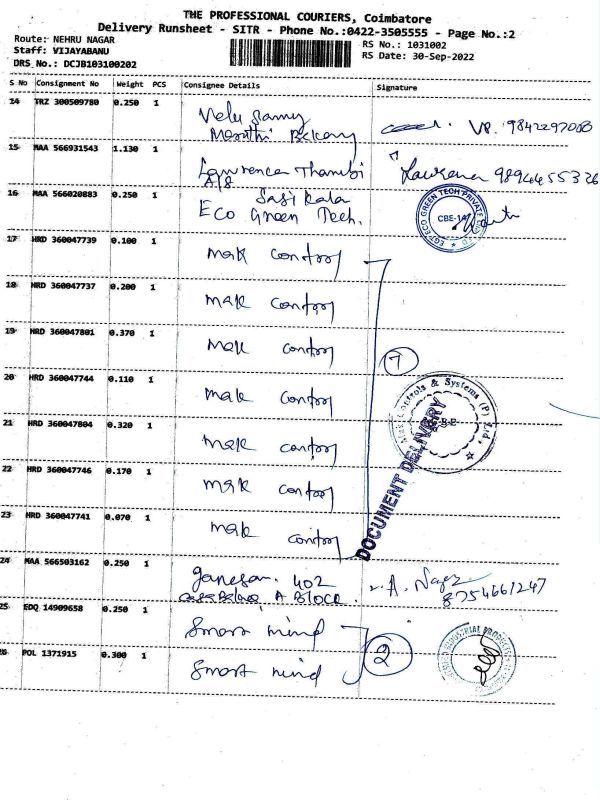 THE PROFESSIONAL COURIERS, Coimbatore
Delivery Runsheet - SITR - Phone No.:0422-3505555 - Page No.:2
Route: NEHRU NAGAR
RS No.: 1031002
Staff: VIJAYABANU
RS Date: 30-Sep-2022
DRS No.: DCJB103100202
S No Consignment No Weight PCS Consignee Details Signature
14 TRZ 300509780 0.250 1 Velu Samy
Bakery VR. 9842297080
15 MAA 566931543 1.130 1 Lawrence Thambi Lawrence
A/8
16 MAA 566020883 0.250 1 Sasi Kala
Eco Green Tech. CBE-14
17 HRD 360047739 0.100 1 mak control
18 HRD 360047737 0.200 1 mak control
19 HRD 360047801 0.370 1 mak control
7
20 HRD 360047744 0.110 1 mak control
Controls & Systems (P) Ltd.,
21 HRD 360047804 0.320 1 mak control
22 HRD 360047746 0.170 1 mak control
23 HRD 360047741 0.070 1 mak control
DOCUMENT DELIVERY
24 MAA 566503162 0.250 1 Ganesan. 402 A.
A Block. 8754661247
25 EDQ 14909658 0.250 1 Smart mind
2
26 POL 1371915 0.300 1 Smart mind